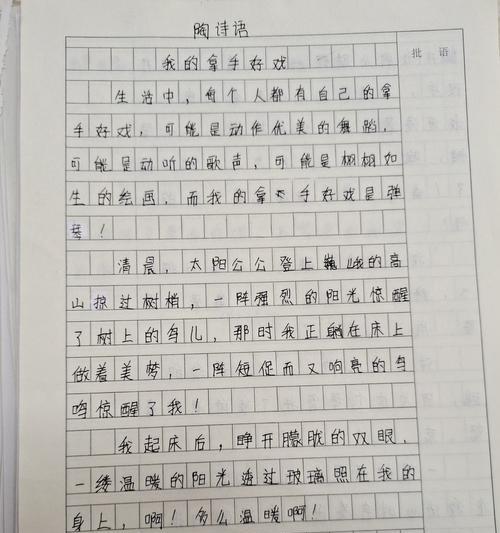 陶诗语
批语
我的拿手好戏
生活中，每个人都有自己的拿
手好戏，可能是动作优美的舞蹈，
可能是动听的歌声，可能是栩栩如
生的绘画，而我的拿手好戏是弹
琴！
清晨，太阳公公登上巍峨的高
山掠过树梢，一阵强烈的阳光惊醒
了树上的鸟儿，那时我正躺在床上
做着美梦，一阵短促而又响亮的鸟
鸣惊醒了我！
我起床后，睁开朦胧的双眼，
一缕温暖的阳光透过玻璃照在我的
身上，啊！多么温暖啊！